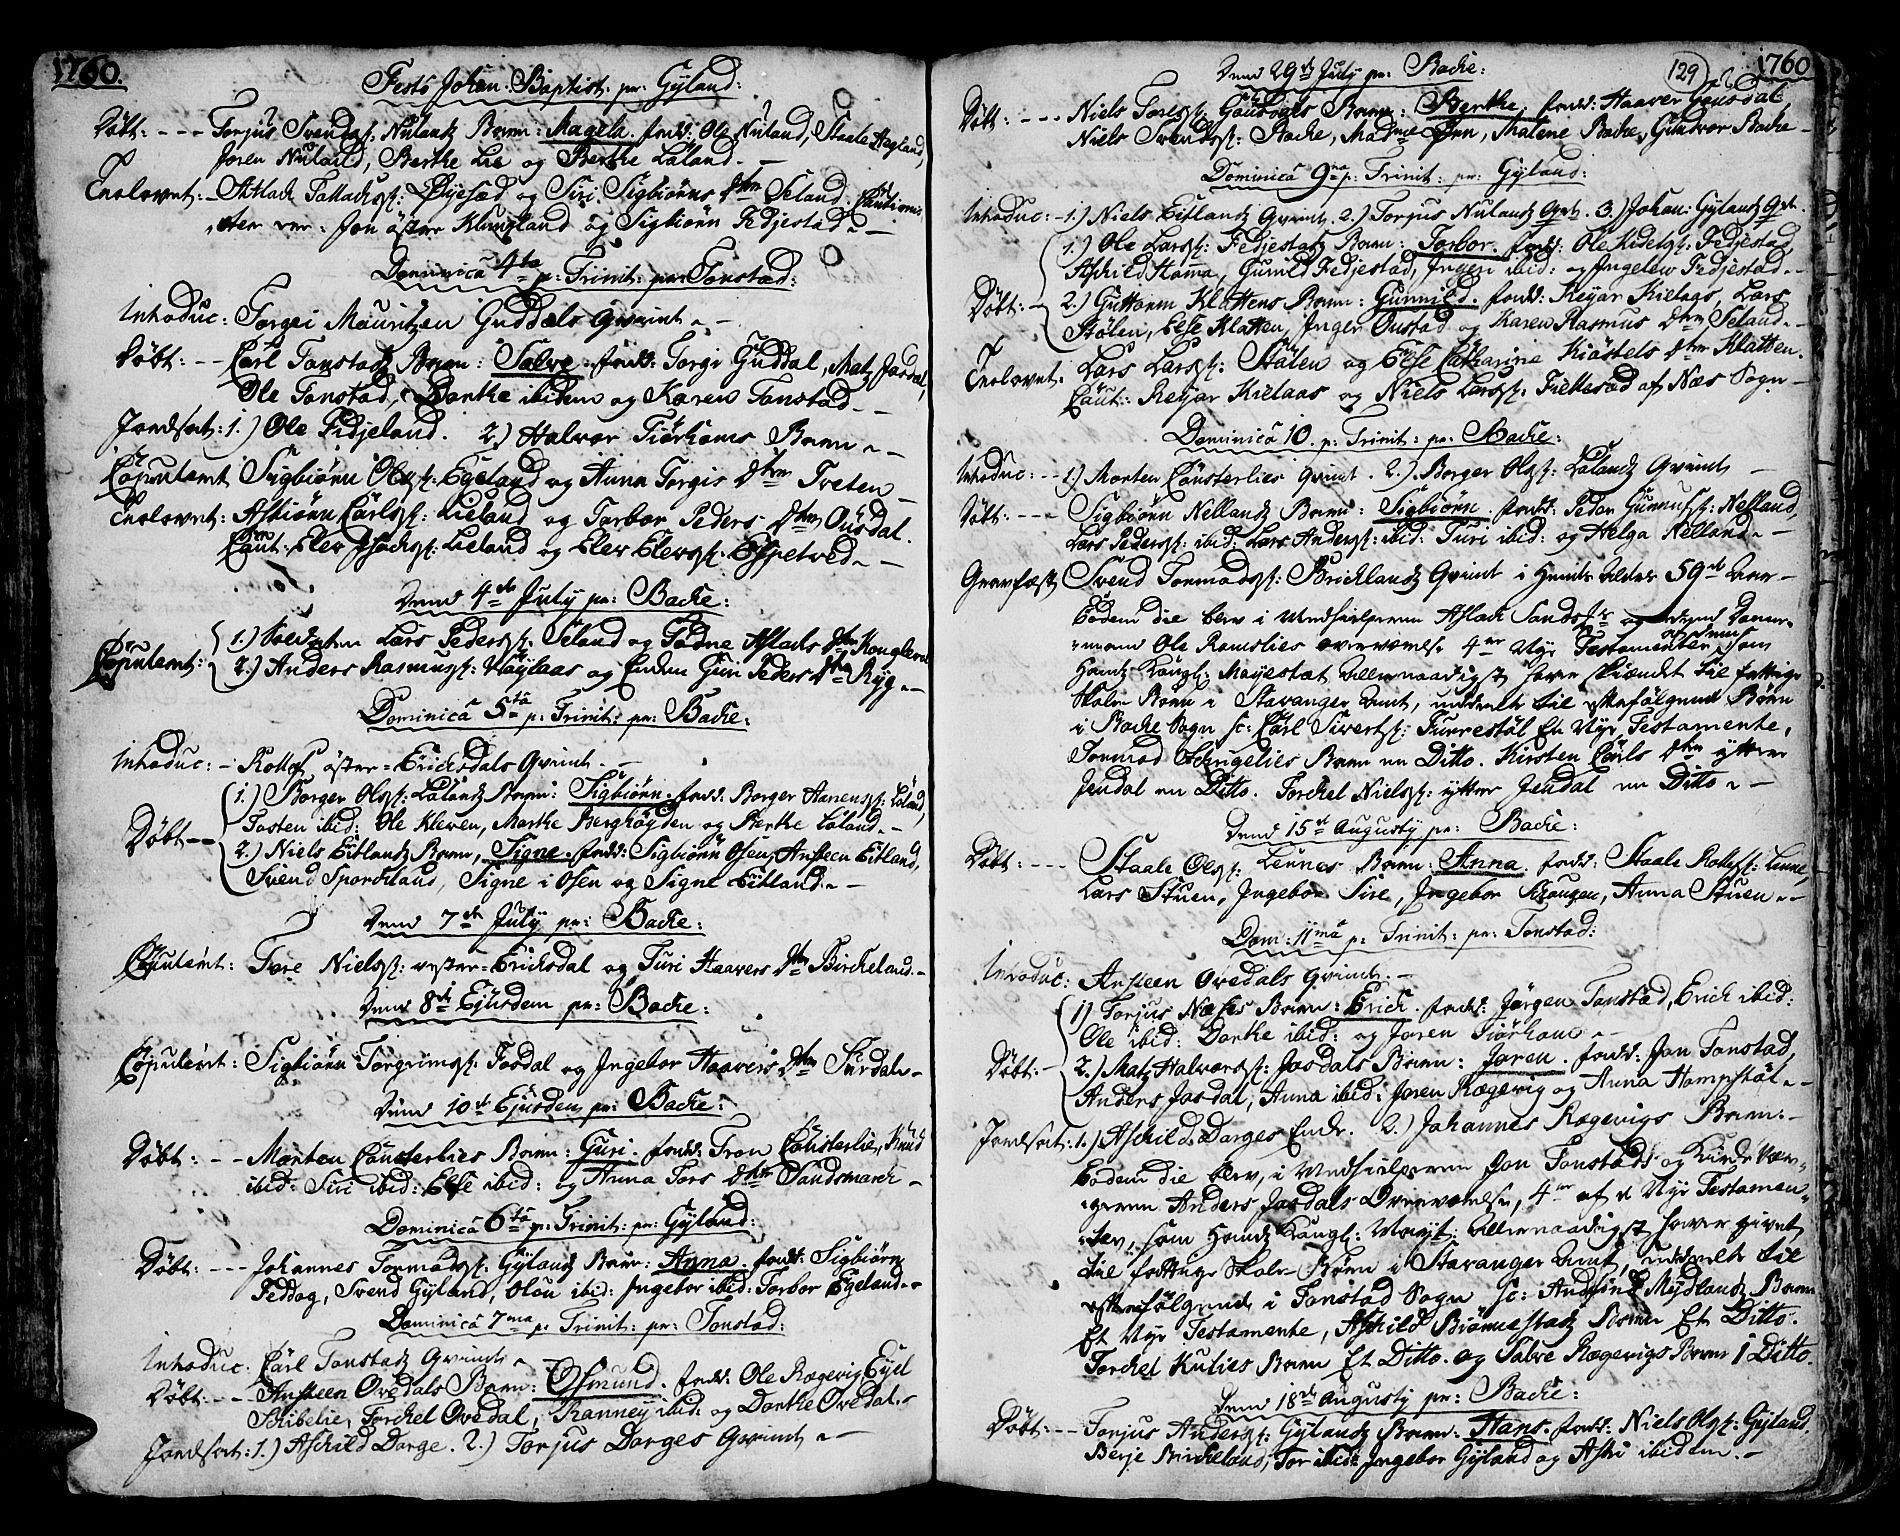 1760.
Festo Johan. Baptist. pr: Gyland:
Døbt: --- Torjus Svends: Nulands Barn: Magela. fadd: Ole Nuland, Staale Hagland,
Joren Nuland, Berthe Lie og Berthe Løland.
Troelovet: - Atlach Tallachs: og Siri Sigbiörns Dtr Seland. Cautioni-
ster var: Jon öster Klungland og Sigbiörn Fedjestad
Dominica 4ta p: Trinit: pr: Tonstad:
Introduc: Torgei Mauritzen Guddals Qvinde
Døbt: -- Carl Tonstads Barn: Salve. fadd: Torgi Guddal, Matz Josdal,
Ole Tonstad, Dorthe ibidem og Karen Tonstad
Jordfæst: 1.) Ole Fidjeland. 2.) Halvor Tiörhoms Barn
Copulerit Sigbiörn Olss: Egeland og Anna Torgis Dtr Tveten
Troelovet: Asbiörn Carls: Lieland og Torbor Peders Dtr Ousdal.
Caut: Elev Isachs: Lieland og Elev Elevs: Espetved
Dend 4de July pr: Backe:
Copulerit: 1.) Soldaten Lars Peders: Seland og Tadne Aslachs Dtr Konglevol
2.) Anders Rasmuss: Høylaas og Enken Guri Peders Dtr Ryg
Dominica 5ta p: Trinit: pr: Backe:
Introduc: - Rollef öster-Ericksdals Qvinde
Døbt -- 1.) Borger Ols: Lølands Barn: Sigbiörn. fadd: Borger Hanens: Løland,
Tosten ibid: Ole Kleven, Marthe Berghögden og Berthe Løland.
2.) Niels Eitlands Barn, Signe. fadd: Sigbiörn Osen, Ansteen Eitland,
Svend Spordsland, Signe i Osen og Signe Eitland.
Dend 7de July pr: Backe:
Copulerit: Tore Niels: vester-Ericksdal og Turi Haavers Dtr Birckeland.
Dend 8de Ejusdem pr: Backe:
Copulerit: Sigbiörn Torgrims: Josdal og Ingebor Haavers Dtr Sirdal
Dend 10de Ejusdem pr: Backe:
Døbt: -- Morten Counsterlies Barn: Guri. fadd: Tron Counsterlie, Knud
ibid: Siri ibid: Else ibid: og Anna Tors Dtr Sandsmarck
Dominica 6ta p: Trinit: pr: Gyland:
Døbt: --- Johannes Tormods: Gylands Barn: Anna. fadd: Sigbiörn
Feddog, Svend Gyland, Olou ibid: Ingebor ibid: Torbor Egeland
Dominica 7ma p: Trinit: pr: Tonstad:
Introduc: Carl Tonstads Qvinde
Døbt: --- Ansteen Ovedals Barn: Osmund. fadd: Ole Rægevig Eyel
Skibelie, Torckel Ovedal, Ranney ibid: og Dorthe Ovedal.
Jordfæst: 1.) Aschild Dorge. 2.) Torjus Dorges Qvinde
129
1760
Dend 29de July pr: Backe:
Døbt: --- Niels Tores: Gousdals Barn: Berthe. fadd: Haaver Gousdal,
Niels Svends: Backe, Madme Ørn, Malene Backe, Gundvor Backe
Dominica 9na p: Trinit: pr: Gyland:
Introduc: - 1.) Niels Eitlands Qvinde. 2.) Torjus Nulands Qv. 3.) Johan: Gylands Qv.
Døbt: - 1.) Ole Lars: Fedjestads Barn: Torbor. fadd: Ole Kidels: Fedjestad
Aschild Homme, Gunild Fedjestad, Ingeri ibid: og Ingelev Fedjestad
2.) Guttorm Klattens Barn: Gunnild. fadd: Reyar Kielaas, Lars
Stølen, Else Klatten, Inger Oustad og Karen Rasmus Dtr Seland
Troelovet. Lars Lars: Stølen og Else Catharine Kiöstels Dtr Klatten.
Caut: Reyar Kielaas og Niels Lars: Fickestad af Næs Sogn
Dominica 10. p: Trinit: pr: Backe:
Introduc: -- 1.) Morten Counsterlies Qvinde. 2.) Borger Ols: Lølands Qvinde
Døbt: --- Sigbiörn Nellands Barn: Sigbiörn. fadd: Peder Gunnufs: Nelland,
Lars Peders: ibid: Lars Anders: ibid: Turi ibid: og Helga Nelland
Gravfæst Svend Tormods: Bricklands Qvinde i hendes Alders 59de Aar
Eodem die blev i Medhielperen Aslach Sands og Danne-
mand Ole Ramslies overværelse 4er Nye Testamenter som
Hands Kongl: Mayestæt Allernaadigst haver skiendet til fattige
Skole Børn i Stavanger Amt, uddeelt til efterfølgende Børn
i Backe Sogn sc: Carl Siverts: Furrestöl Et Nyt Testamente,
Tormod Schugelies Barn en Ditto. Kirsten Carls Dtr yttrer
Jendal en Ditto. Torckel Niels: ytter Jendal en Ditto
Dend 15de Augusty pr: Backe:
Døbt: --- Staale Ols: Lennes Barn: Anna. fadd: Staale Rollefs: Lenne,
Lars Stuen, Ingebor Sire, Ingebor Skougen, Anna Stuen
Dom: 11ma p: Trinit: pr: Tonstad:
Introduc: Ansteen Ovedals Qvinde.
Døbt: - 1) Torjus Næses Barn: Erick. fadd: Jørgen Tonstad, Erich ibid:
Ole ibid: Dorthe ibid: og Joren Tiörhom
2.) Matz Halvords: Josdals Barn: Joren. fadd: Jon Tonstad,
Anders Josdal, Anna ibid: Joren Rægevig og Anna Hompstöl
Jordfæst: 1.) Aschild Dorges Enke. 2.) Johannes Rægevigs Barn.
Eodem die blev, i Medhielperen Jon Tonstads og Kircke Vær-
geren Anders Josdals Overværelse, 4er af de Nye Testamen-
ter, som Hands Kongl: Mayt: Allernaadigst haver givet
til fattige Skole-Børn i Stavanger Amt, uddeelt til
efterfølgende i Tonstad Sogn sc: Mydlands Barn
Et Nyt Testamente, Aschild Biönnestads Barn Et Ditto.
Torckel Kulies Barn Et Ditto. og Salve Rægevigs Barn 1 Ditto.
Dend 18de Augusty pr: Backe:
Døbt: -- Torjus Anders: Gylands Barn: Hans. fadd: Niels Ols: Gyland,
Berje Birckeland, Tor ibid: Ingebor Gyland og Aski ibidem